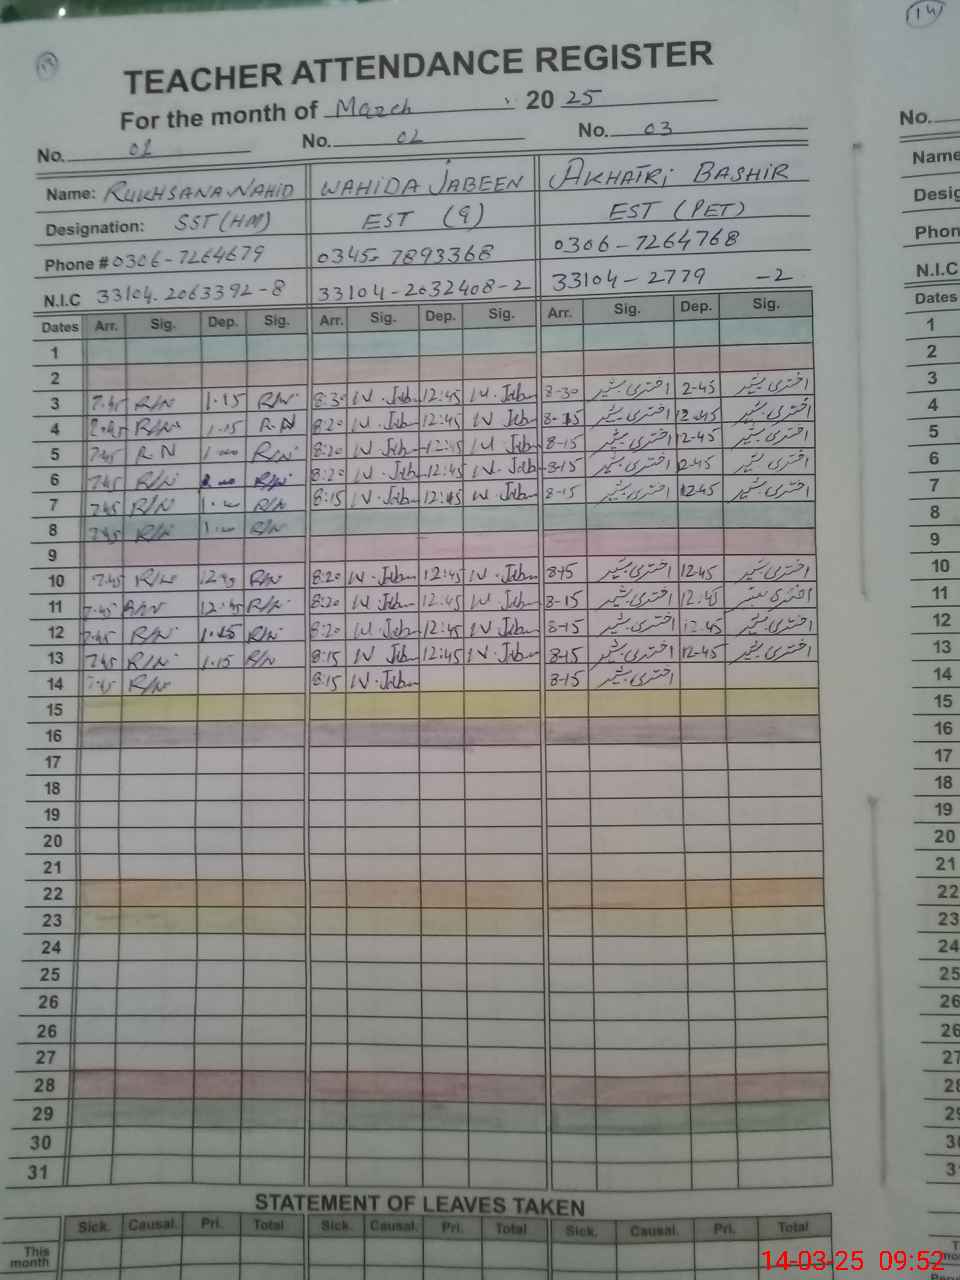 14
TEACHER ATTENDANCE REGISTER
For the month of March 2025
No. 01 No. 02 No. 03 No.
Name: RUKHSANA NAHID WAHIDA JABEEN AKHATRI BASHIR Name
Designation: SST (HM) EST (9) EST (PET) Desig
Phone # 0306-7264679 0345-7893368 0306-7264768 Phon
N.I.C 33104-2063392-8 33104-2032408-2 33104-2779 -2 N.I.C
Dates Arr. Sig. Dep. Sig. Arr. Sig. Dep. Sig. Arr. Sig. Dep. Sig. Dates
1 1
2 2
3 7.45 R/N 1.15 R/N 8:30 W.Jabn 12:45 W.Jabn 8-30 اختری بشیر 2-45 اختری بشیر 3
4 R/N 1.15 R.N 8:20 W.Jabn 12:45 W.Jabn 8-15 اختری بشیر 12-45 اختری بشیر 4
5 7.45 R N 1.00 R/N 8:20 W.Jabn 12:45 W.Jabn 8-15 اختری بشیر 12-45 اختری بشیر 5
6 7.45 R/N R/N 8:20 W.Jabn 12:45 W.Jabn 8-15 اختری بشیر 2-45 اختری بشیر 6
7 7.45 R/N 1.00 R/N 8:15 W.Jabn 12:45 W.Jabn 8-15 اختری بشیر 12-45 اختری بشیر 7
8 7.45 R/N 1.00 R/N 8
9 9
10 7.45 R/N 12.45 R/N 8:20 W.Jabn 12:45 W.Jabn 8-15 اختری بشیر 12-45 اختری بشیر 10
11 7.45 R/N 12.45 R/N 8:20 W.Jabn 12:45 W.Jabn 8-15 اختری بشیر 12-45 اختری بشیر 11
12 7.45 R/N 1.15 R/N 8:20 W.Jabn 12:45 W.Jabn 8-15 اختری بشیر 12-45 اختری بشیر 12
13 7.45 R/N 1.15 R/N 8:15 W.Jabn 12:45 W.Jabn 8-15 اختری بشیر 12-45 اختری بشیر 13
14 7.45 R/N 8:15 W.Jabn 8-15 اختری بشیر 14
15 15
16 16
17 17
18 18
19 19
20 20
21 21
22 22
23 23
24 24
25 25
26 26
26 26
27 27
28 28
29 29
30 30
31 31
STATEMENT OF LEAVES TAKEN
Sick. Causal. Pri. Total Sick. Causal. Pri. Total Sick. Causal. Pri. Total
This month
14-03-25 09:52